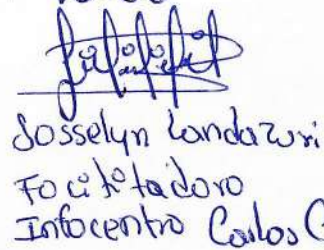 Josselyn Landazuri
Facilitadora
Infocentro Carlos